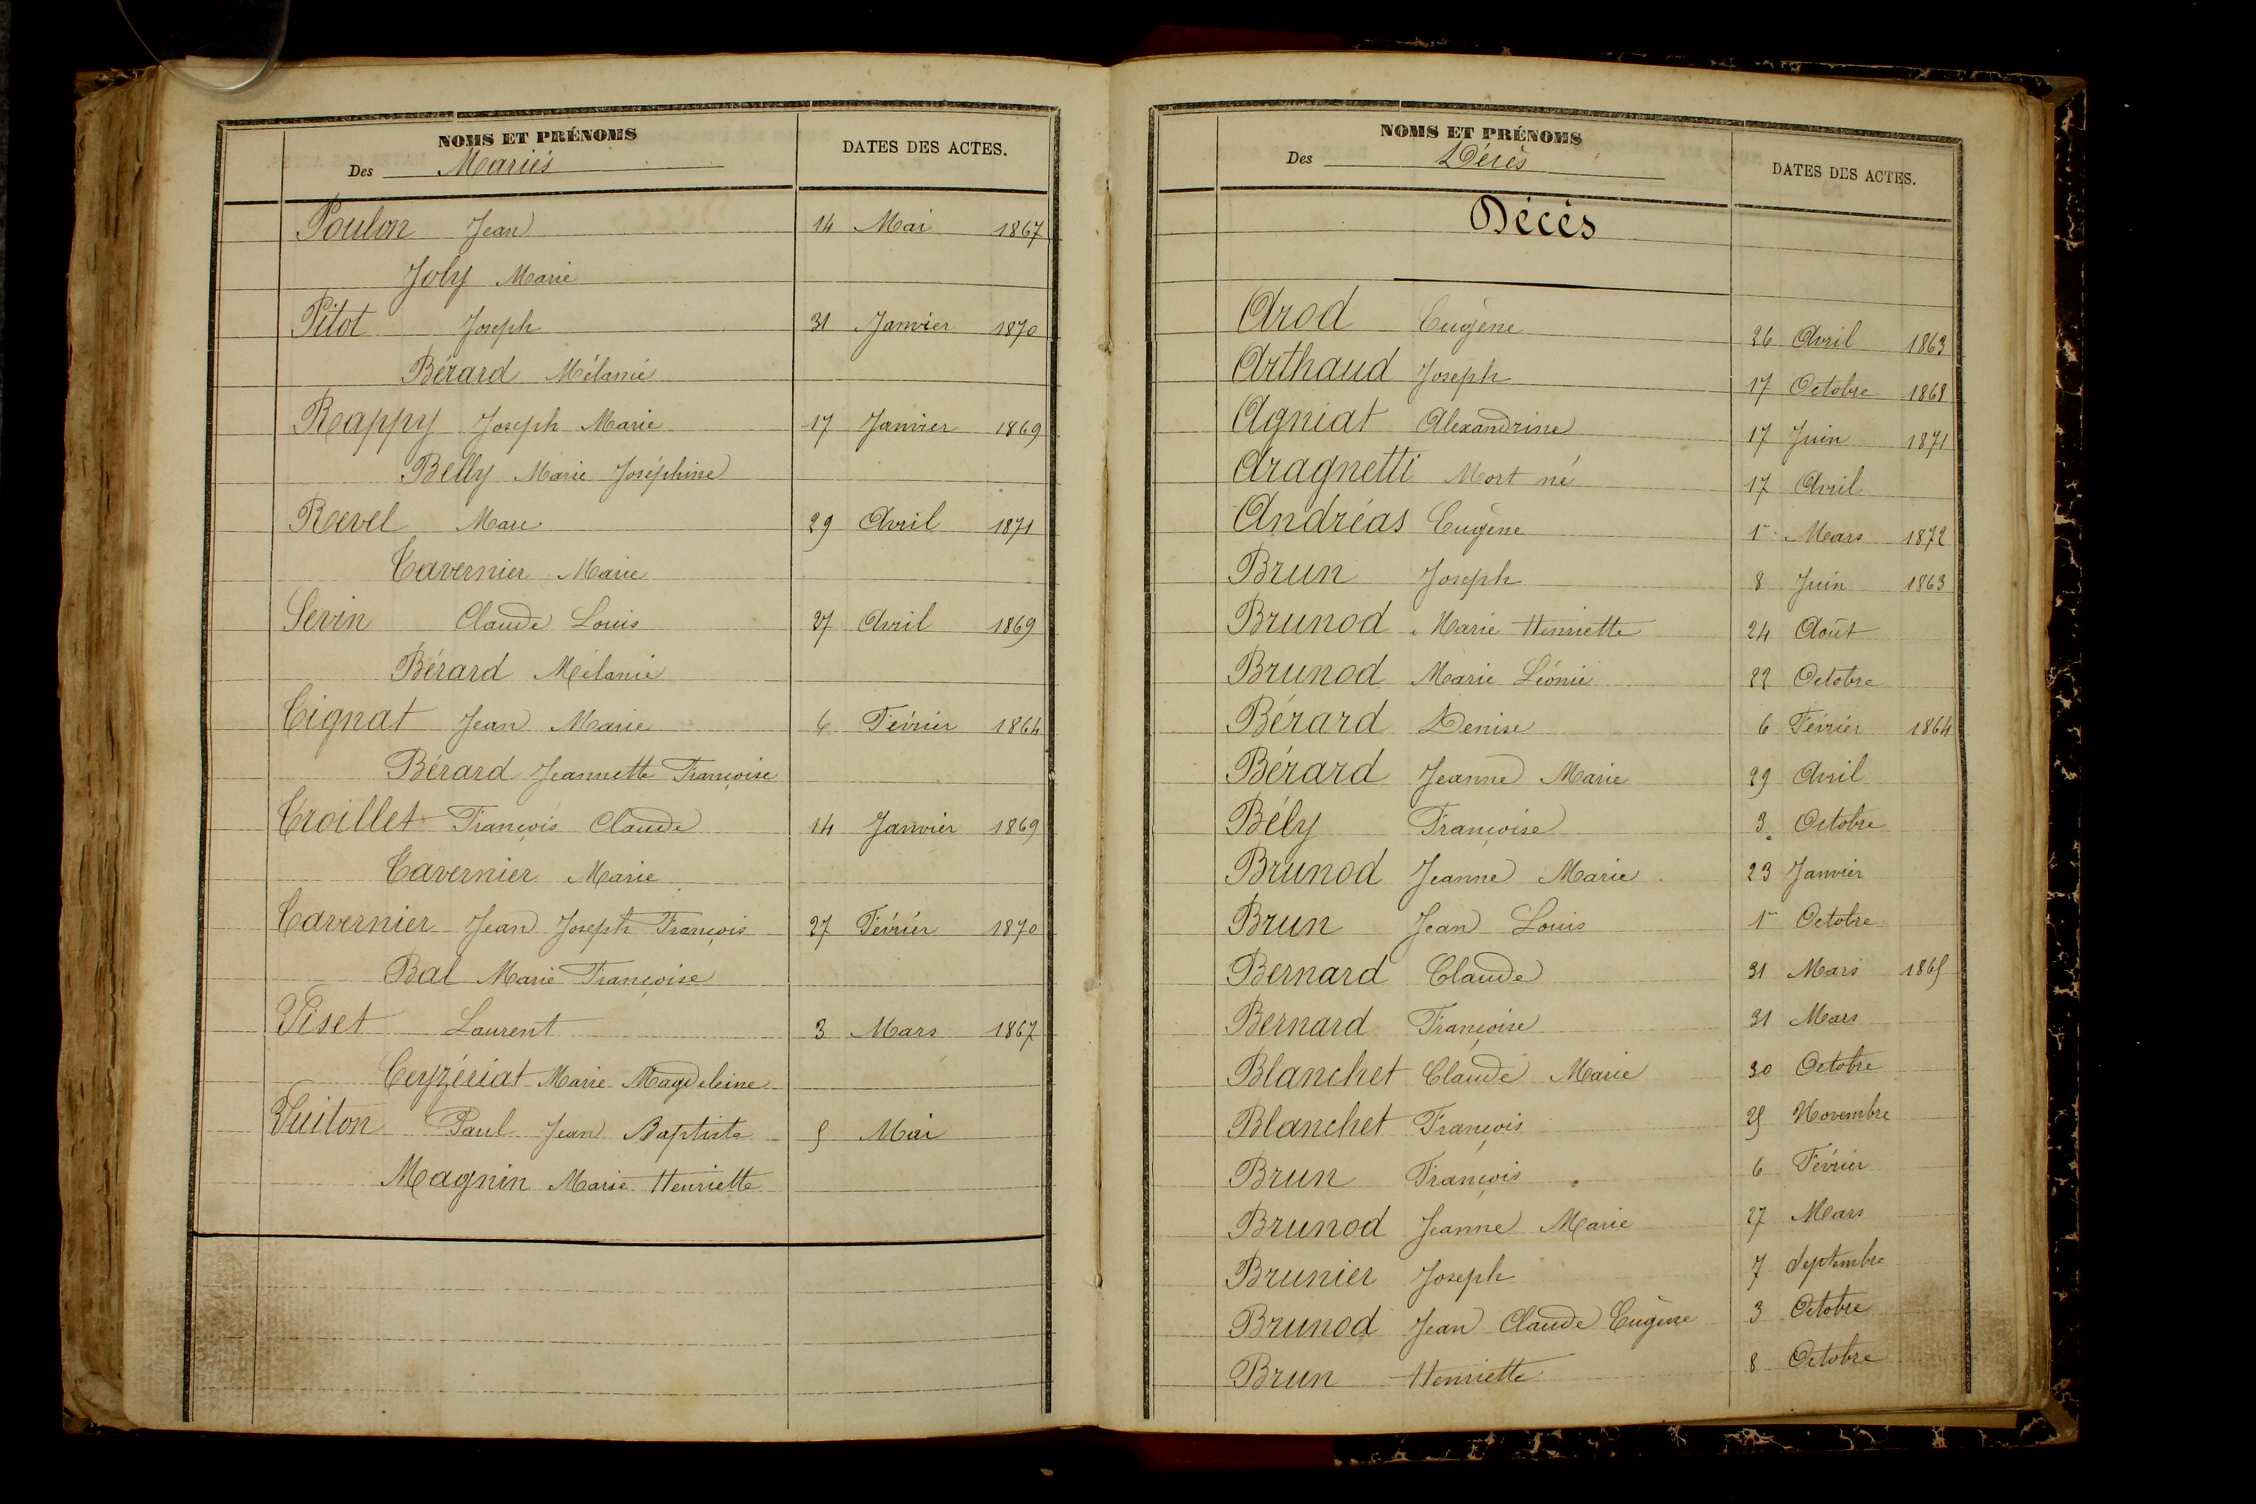 NOMS ET PRÉNOMS
Des Mariés
DATES DES ACTES.
Poulon Jean 14 Mai 1867
Joly Marie
Pitot Joseph 31 Janvier 1870
Bérard Mélanie
Rappy Joseph Marie 17 Janvier 1869
Belly Marie Joséphine
Revel Marc 29 Avril 1871
Tavernier Marie
Sevin Claude Louis 27 Avril 1869
Bérard Mélanie
Tignat Jean Marie 6 Février 1864
Bérard Jeannette Françoise
Troillet François Claude 14 Janvier 1869
Tavernier Marie
Tavernier Jean Joseph François 27 Février 1870
Bal Marie Françoise
Viset Laurent 3 Mars 1867
Ceyzériat Marie Magdeleine
Vuiton Paul Jean Baptiste 5 Mai
Magnin Marie Henriette
NOMS ET PRÉNOMS
Des Décès
DATES DES ACTES.
Décès
Arod Eugène 26 Avril 1863
Arthaud Joseph 17 Octobre 1868
Agniat Alexandrine 17 Juin 1871
Aragnetti Mort né 17 Avril
Andréas Eugène 1r Mars 1872
Brun Joseph 8 Juin 1863
Brunod Marie Henriette 24 Août
Brunod Marie Léonie 22 Octobre
Bérard Denise 6 Février 1864
Bérard Jeanne Marie 29 Avril
Bély Françoise 3 Octobre
Brunod Jeanne Marie 23 Janvier
Brun Jean Louis 1r Octobre
Bernard Claude 31 Mars 1865
Bernard Françoise 31 Mars
Blanchet Claude Marie 30 Octobre
Blanchet François 25 Novembre
Brun François 6 Février
Brunod Jeanne Marie 27 Mars
Brunier Joseph 7 Septembre
Brunod Jean Claude Eugène 3 Octobre
Brun Henriette 8 Octobre